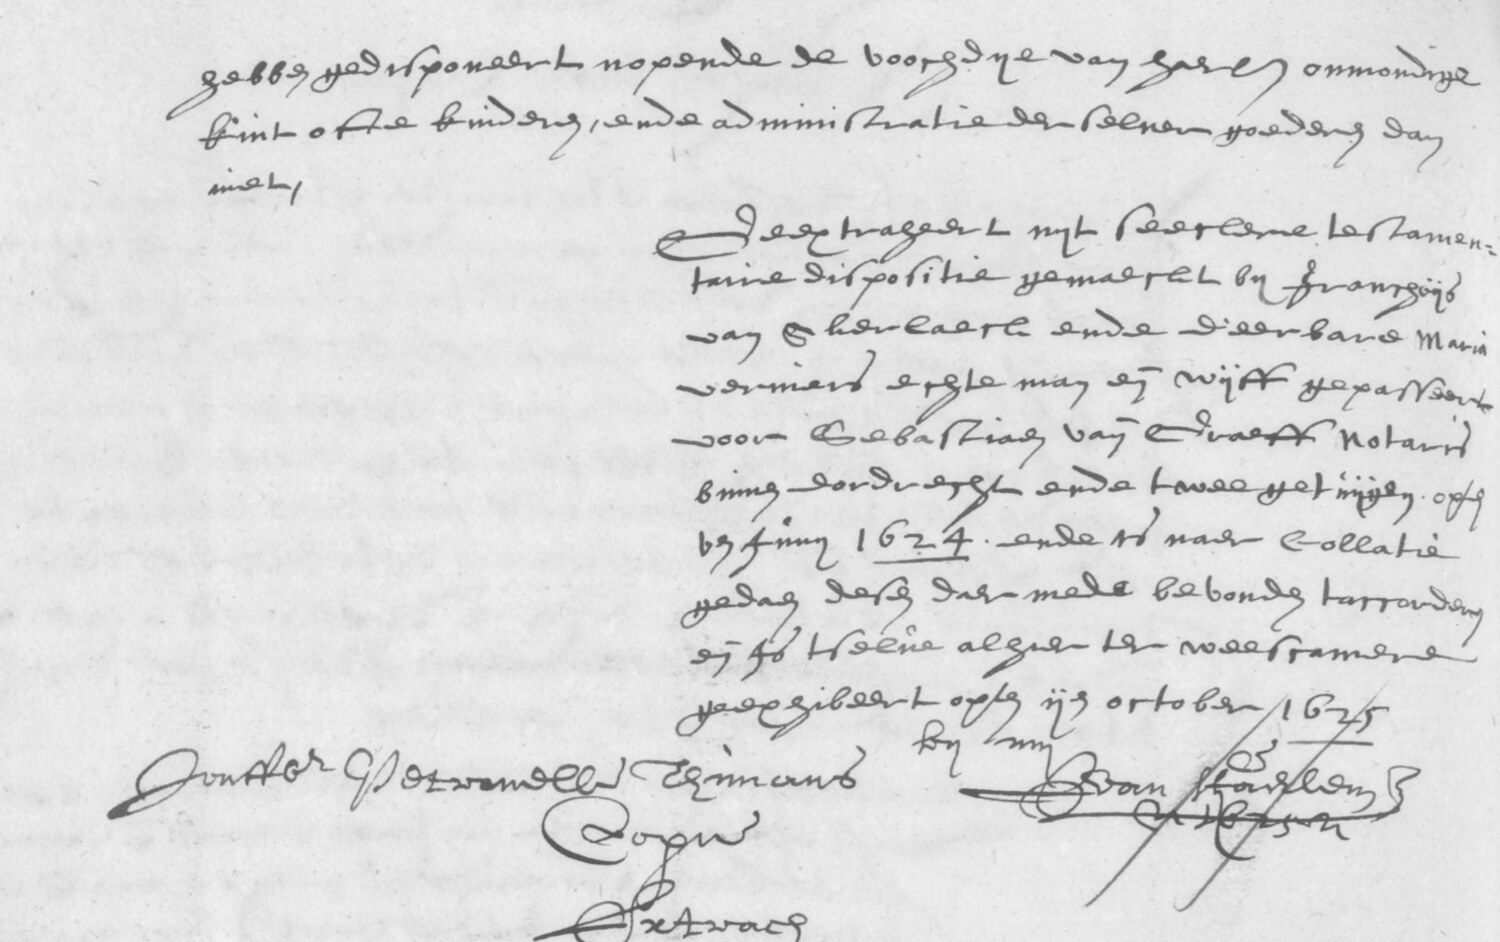 hebben gedisponeert nopende de voochdije van haerln onmondige
kint ofte kinderen, ende administratie der selver goederen dan
niet,
Geextraheert uijt seeckere testamen-
taire dispositie gemaeckt bij Franchoijs
van Sherlaeck ende d'eerbare Maria
verniers echte man en wijff gepasseert
voor Sebastiaen van Graeff Notaris
binnen dordrecht ende twee getuijgen opten
ven Junij 1624. ende is naer Collatie
gedaen desen daer mede bevonden taccorderen
en is tselve alhier ter weescamere
geexhibeert opten ijen october 1625
bij mij
Jouffer Petronelle Thimans
Copie
Extract